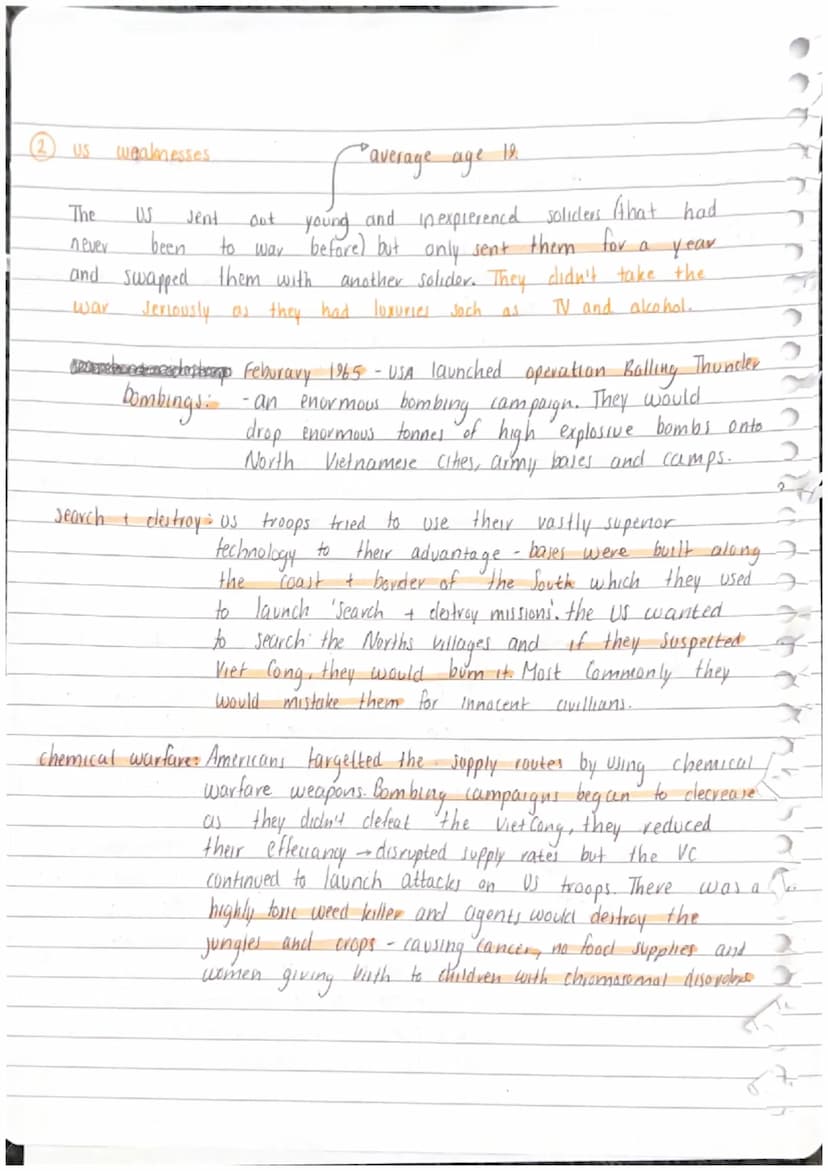 ② US weaknesses
average age 19.
The US sent out young and inexpierencd soliders (that had
never been to war before) but only sent them for a year
and swapped them with another solider. They didn't take the
war seriously as they had luxuries such as TV and alcohol.
Feburary 1965 - USA launched operation Rolling Thunder
Bombings: - an enormous bombing campaign. They would
drop enormous tonnes of high explosive bombs onto
North Vietnamese cities, army bases and camps.
search + destroy: US troops tried to use their vastly superior
technology to their advantage - bases were built along
the coast + border of the South which they used
to launch 'search + destroy missions'. the US wanted
to search the Norths villages and if they suspected
Viet Cong, they would burn it. Most commonly they
would mistake them for innocent civillians.
chemical warfare: Americans targetted the supply routes by using chemical
warfare weapons. Bombing campaigns began to decrease
as they didn't defeat the VietCong, they reduced
their effeciancy → disrupted supply rates but the VC
continued to launch attacks on US troops. There was a
highly toxic weed killer and agents would destroy the
jungles and crops - causing cancer, no food supplies and
women giving birth to children with chromosomal disorders